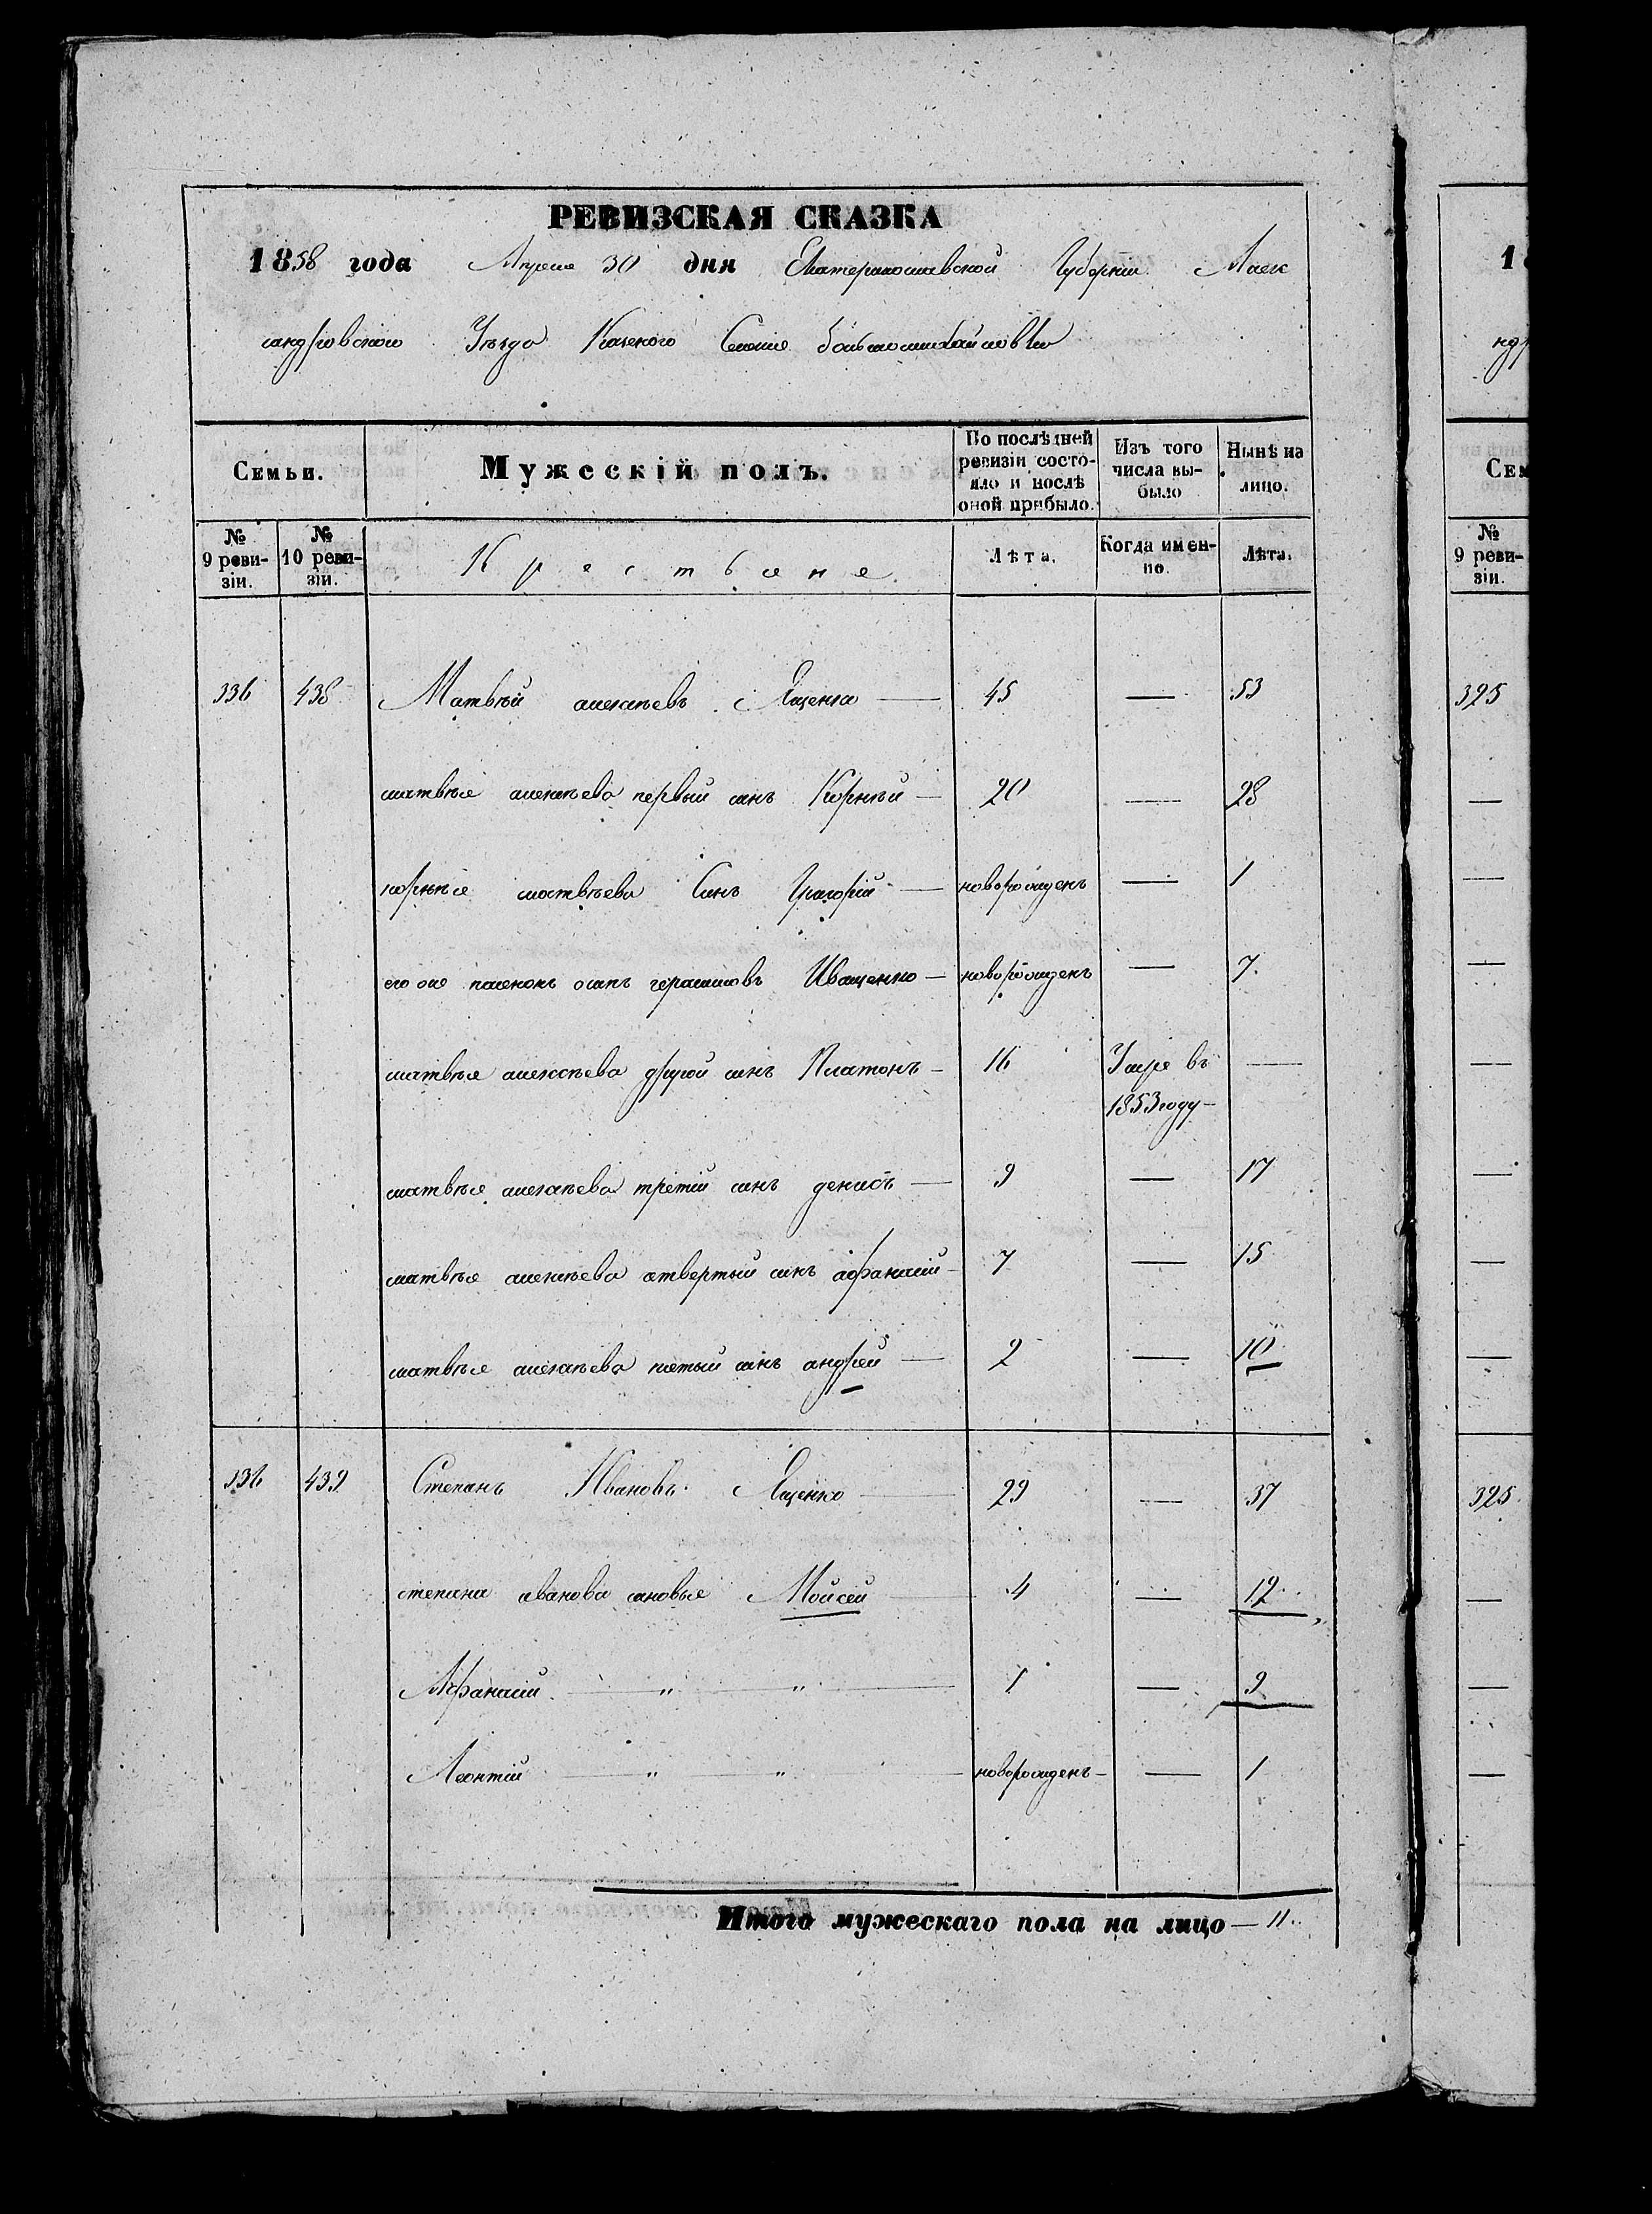 РЕВИЗСКАЯ СКАЗКА
1858 года Апреля 30 дня Екатеринославской Губернии Алек
сандровского Уезда Казеного Селения большомихайловки
Семьи.
Мужескій полъ.
По послѣдней ревизіи состояло и послѣ оной прибыло.
Изъ того числа выбыло
Нынѣ на лицо.
№ 9 ревизіи.
№ 10 ревизіи.
Крестьяне.
Лѣта.
Когда именно.
Лѣта.
336 438 Матвѣй алексѣевъ Яценко — 45 — 53
матвѣя алексѣева первый синъ Корнѣй — 20 — 28
корнѣя матвѣева Синъ Григорій — новорожденъ — 1
его же пасенокъ осипъ герасимовъ Иващенко — новорожденъ — 7.
матвѣя алексѣева другой синъ Платонъ — 16 Умре въ —
1853 году —
матвѣя алексѣева третій синъ денисъ — 9 — 17
матвѣя алексѣева четвертый синъ афанасій — 7 — 15
матвѣя алексѣева пятый синъ андрей — 2 — 10
336 439 Степанъ Ивановъ Яценко — 29 — 37
степана иванова сановья Мойсей — 4 — 12
Афанасій — " — " — 1 — 9
Леонтій — " — " — новорожденъ — — 1
Итого мужескаго пола на лицо — 11.
1
ндр
Сем
№ 9 ревизіи.
325
—
—
—
—
—
—
—
325
—
—
—